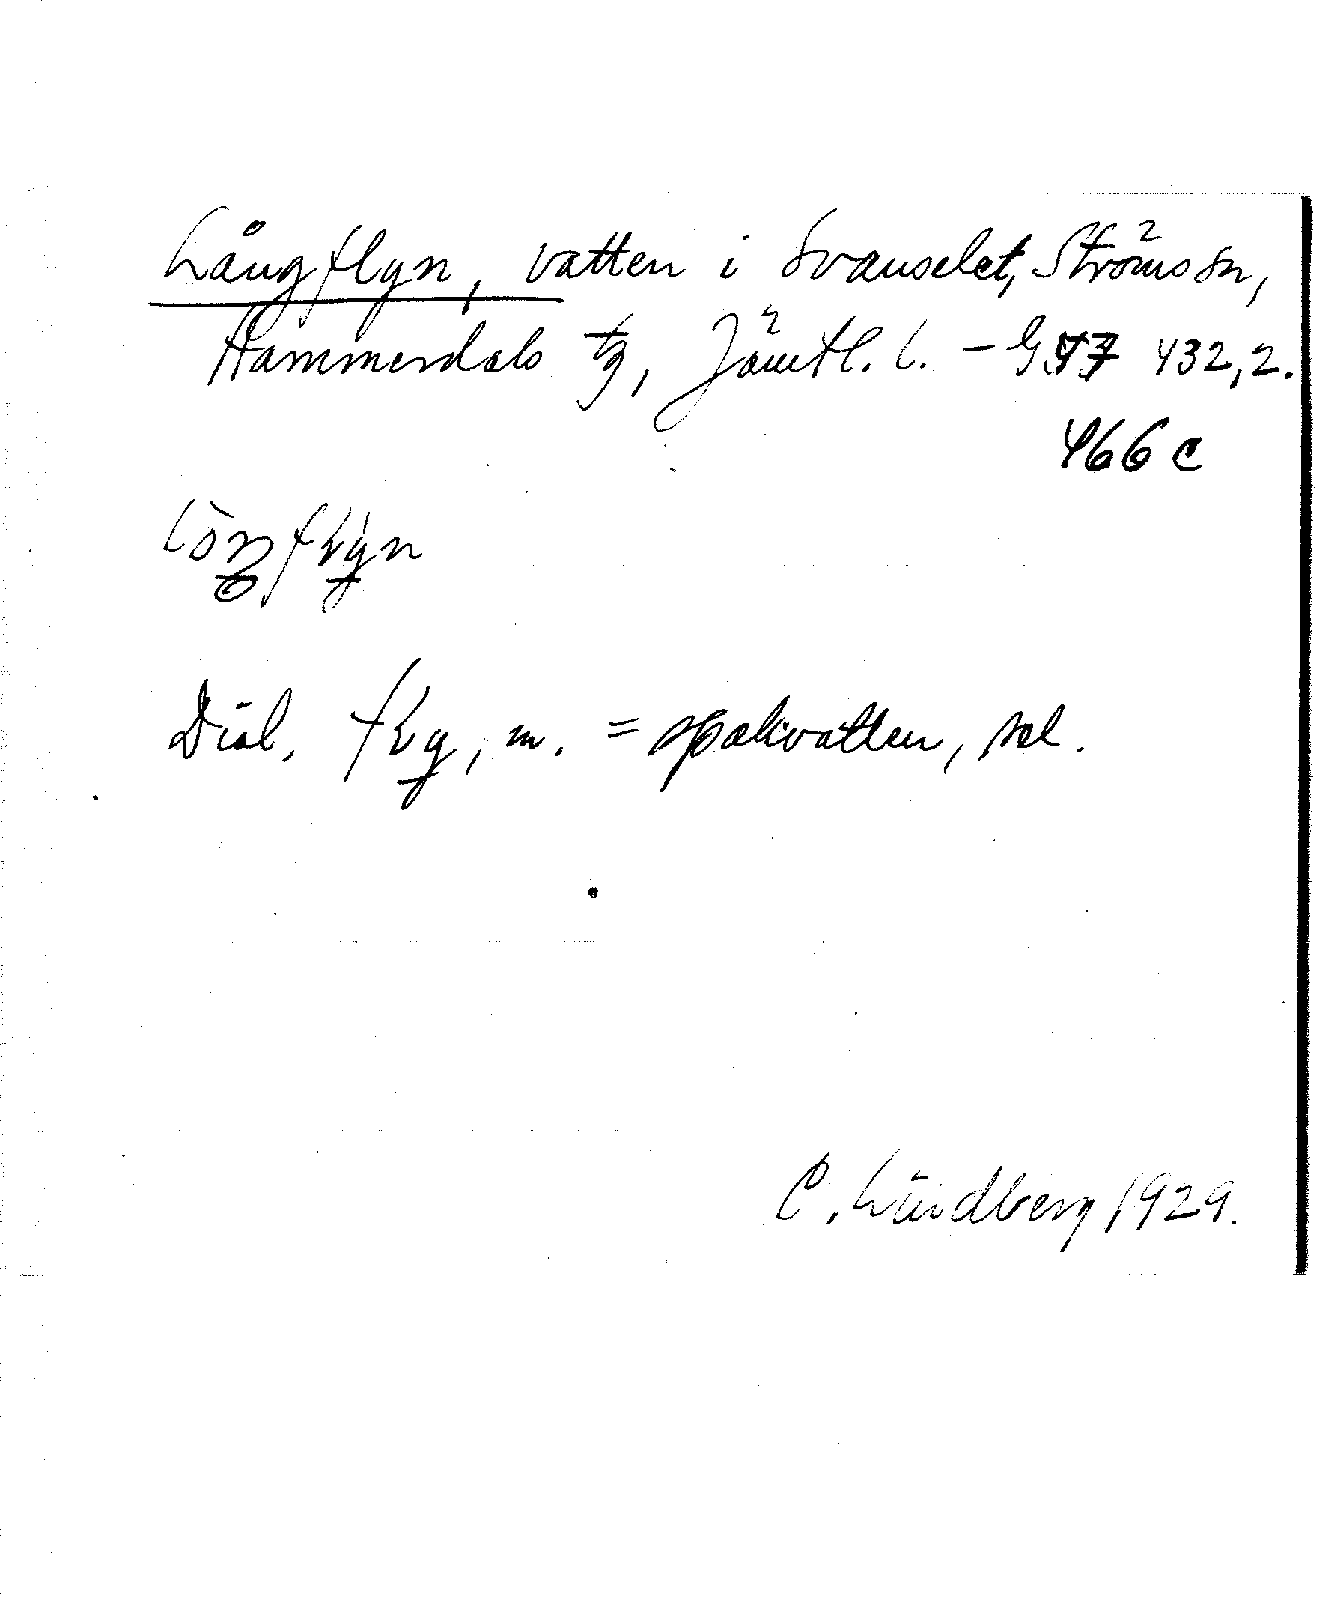 Långflyn, vatten i Svanselet, Ströms sn,
Hammerdals tg, Jämtl. l. – 432,2.
466 c
Dial. m. = spakvatten, sel.
C. Lindberg 1929.